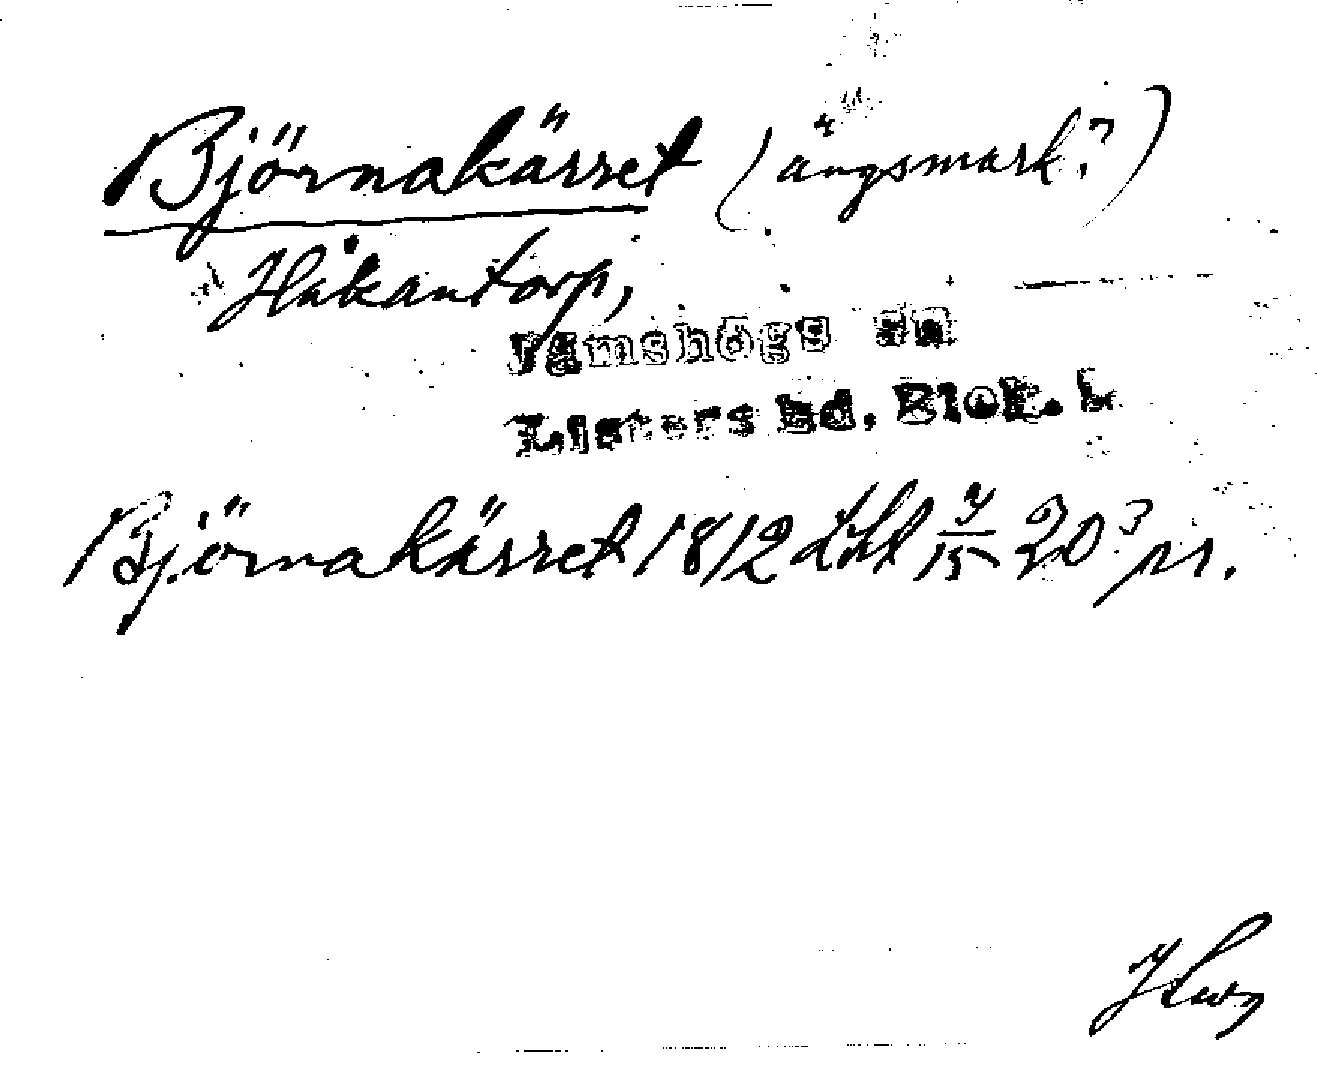 Björnakärret (ängsmark?)
Håkantorp,
Jämshögs sn
Listers hd. Blek. l.
Björnakärret 1812 dhl 9/15 20 3